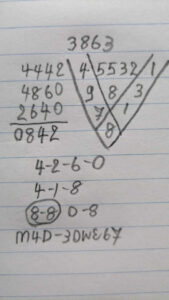 3863
4442 4 5532 1
4860 9 8 3
2640 7 1
0842 8
4-2-6-0
4-1-8
8-8 0-8
M4D-3DWE67